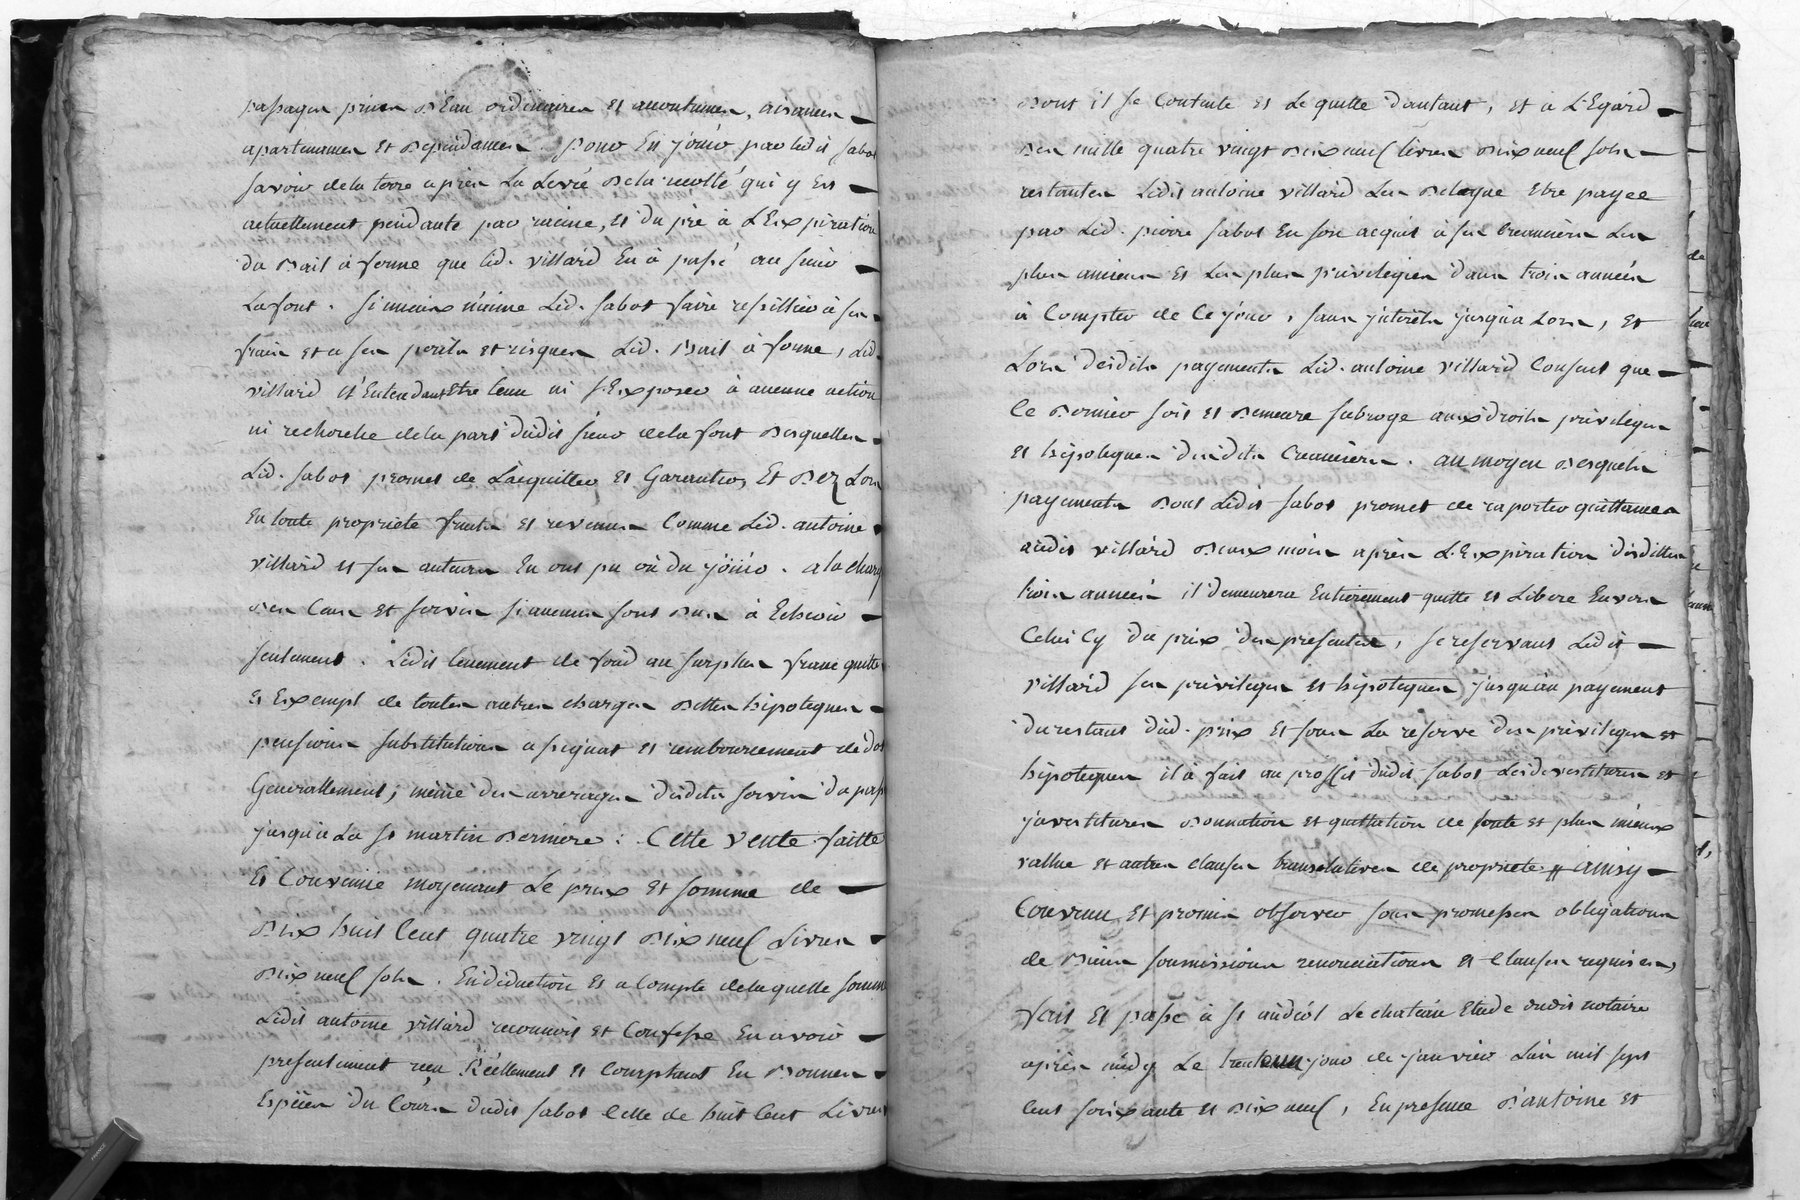 passages prises d'Eau ordinaires et accoutumées, aisances
apartenances et dependances. pour En jouir par ledit sabot
savoir de la terre apres La Levée de la recolté qui y est
actuellement pendante par racine, et du pré a L'Expiration
du Bail a ferme que led. villard En à passé au sieur
Lafont. si mieux n'aime Led. sabot faire resillier à ses
frais et a ses perils et risques Led. Bail à ferme, Led.
villard N'Entendant Etre tenu ni s'Exposer à aucune action
ni recherche de la part dudit sieur de la font desquelles
Led. sabot promet de L'acquitter et Garantir, Et dez Lors
En toute proprieté fruits et revenus Comme Led. antoine
villard et ses auteurs En ont pu ou du joüir. a la charge
des Cens et servis si aucuns sont dus à Echoir
seulement. Ledit tenement de fond au surplus franc quitte
et Exempt de toutes autres charges dettes hipoteques
pensions substitutions asseignat et remboursement de dot
Generallement, même des arrerages desdits servis du passé
jusqu'a La st martin derniere : Cette vente faitte
Et Convenüe moyenant Le prix et somme de
dix huit Cent quatre vingt dix neuf Livres
dix neuf sols. En deduction et a Compte de la quelle somme
Ledit antoine villard reconnoit et Confesse En avoir
presentement reçu Réellement et Comptant En Bonnes
Espéces du Cours dudit sabot Celle de huit Cent Livres
dont il se Contente et Le quitte d'autant, et à L'Egard
des mille quatre vingt dix neuf livres dix neuf sols
restantes Ledit antoine villard Les delegue Etre payée
par Led. pierre sabot En son acquit à ses Creanciers Les
plus anciens et Les plus privilegiés dans trois années
à Compter de Ce jour, sans jnterêts jusqu'a Lors, et
Lors desdits payements Led. antoine villard Consent que
Ce dernier soit et demeure subrogé aux droits privileges
et hipoteques desdits Creanciers. au moyen desquels
payements dont Ledit sabot promet de raporter quittances
audit villard deux mois après L'Expiration desdittes
trois années il demeurera Entierement quitte et Liberé Envers
Celui Cy du prix des presentes, se reservant Ledit
villard ses privileges et hipoteques jusqu'au payement
du restant dud. prix et sous La reserve des privileges et
hipoteques il à fait au proffit dudit sabot Les devestitures et
jnvestitures donnation et quittation de toute et plus mieux
vallue et autres clauses translatives de proprieté ainsy
Convenu, Et promis observer sous promesses obligations
de Biens soumissions renonciations et Clauses requises,
fait Et passé à st andéol Le chateau Etude dudit notaire
après midy Le trente un jour de janvier L'an mil sept
Cent soixante et dix neuf, En presence d'antoine et